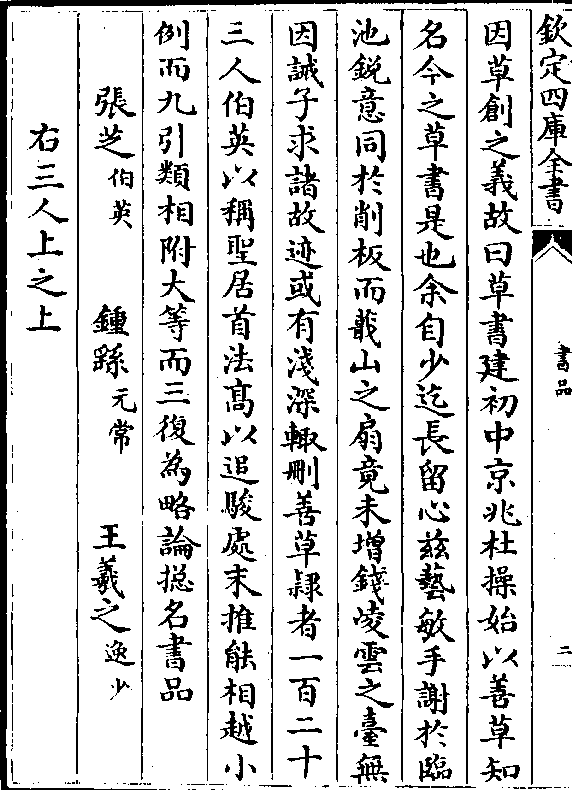 欽定四庫全書
書品
二
因草創之義故曰草書建初中京兆杜操始以善草知
名今之草書是也余自少迄長留心兹藝敏手謝於臨
池鋭意同於削板而蕺山之扇竟未增錢凌雲之臺無
因誡子求諸故迹或有淺深輙删善草隸者一百二十
三人伯英以稱聖居首法髙以追駿處末推能相越小
例而九引類相附大等而三復為略論揔名書品
張芝伯英 鍾繇元常 王羲之逸少
右三人上之上